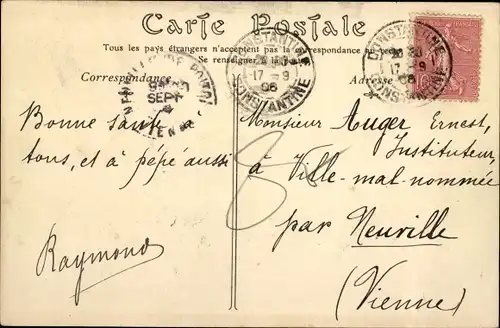 Carte Postale
Tous les pays étrangers n'acceptent pas la correspondance au recto
Se renseigner à la
Correspondance
Adresse
CONSTANTINE
17-9
06
CONSTANTINE
CONSTANTINE
17-9
06
CONSTANTINE
SEPT
VIENNE
Bonne santé
tous, et à pépé aussi
Raymond
Monsieur Auger Ernest,
Instituteur,
à Ville-mal-nommée
par Neuville
(Vienne)